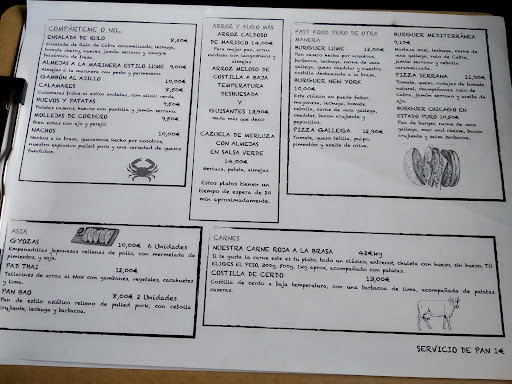 COMPÁRTEME O NO...
ENSALADA DE RULO 8,50€
Ensalada de Rulo de Cabra caramelizado, lechuga,
tomate cherry, nueces, jamón serrano y vinagre
balsámico de fresa.
ALMEJAS A LA MARINERA ESTILO LUME 9,00€
Almejas a la marinera con pesto y parmesano.
GAMBÓN AL AJILLO 10,00€
CALAMARES 8,50€
Calamares fritos al estilo andaluz, con alioli
HUEVOS Y PATATAS 9,50€
Patatas caseras, huevos con puntilla y jamón serrano.
MOLLEJAS DE CORDERO 9,50€
Bien echas con ajo y perejil
NACHOS 10,00€
Nachos a la brasa, gustosamente hecho por nosotros,
nuestro explosivo pulled pork y una variedad de quesos
fundidos.
ARROZ Y ALGO MÁS
ARROZ CALDOSO
DE MARISCO 14,00€
Para mojar pan, arroz
caldoso con langostinos y
almejas
ARROZ MELOSO DE
COSTILLA A BAJA
TEMPERATURA
DESHUESADA
Y
GUISANTES 13,90€
Nada más que decir
CAZUELA DE MERLUZA
CON ALMEJAS
EN SALSA VERDE
14,00€
Merluza, patata, almejas.
Estos platos tienen un
tiempo de espera de 20
min aproximadamente.
FAST FOOD PERO DE OTRA
MANERA
BURGUER LUME 12,00€
Pan casero hecho por nosotros,
barbacoa, lechuga, carne de vaca
gallega, queso cheddar y nuestra
costilla deshuesada a la brasa.
BURGUER NEW YORK
10,00€
Este clásico no puede faltar,
mayonesa, lechuga, tomate,
cebolla, carne de vaca gallega,
cheddar, bacon crujiente y
pepinillos.
PIZZA GALLEGA 12,90€
Tomate, queso tetilla, pulpo,
pimentón y aceite de oliva.
BURGUER MEDITERRÁNEA
9,10€
Mostaza miel, lechuga, carne de
vaca gallega, rulo de Cabra,
jamón serrano, tomate y cebolla
caramelizada.
PIZZA SERRANA 11,90€
Tomate, queso, rodajas de tomate
natural, champiñones, rulo de
Cabra, jamón serrano y aceite de
ajo.
BURGUER CHICAGO EN
ESTADO PURO 10,50€
Pan de burger, carne de vaca
gallega, mac and cheese, bacon
crujiente y salsa barbacoa.
ASIA
GYOZAS 10,00€ 6 Unidades
Empanadillas japonesas rellenas de pollo, con mermelada de
pimientos, y soja.
PAD THAI 12,00€
Tallarines de arroz al Wok con gambones, vegetales, cacahuetes
y lima.
PAN BAO 8,00€ 2 Unidades
Pan de estilo asiático relleno de pulled pork, con cebolla
crujiente, lechuga y barbacoa.
CARNES
NUESTRA CARNE ROJA A LA BRASA 42€kg
Si te gusta la carne este es tu plato, todo un clásico, entrecot, chuleta con hueso, sin hueso, TÚ
ELIGES EL PESO, 300g, 500g, 1kg aprox, acompañado con patatas.
COSTILLA DE CERDO 13,00€
Costilla de cerdo a baja temperatura, con una barbacoa de lima, acompañada de patatas
caseras.
SERVICIO DE PAN 1€